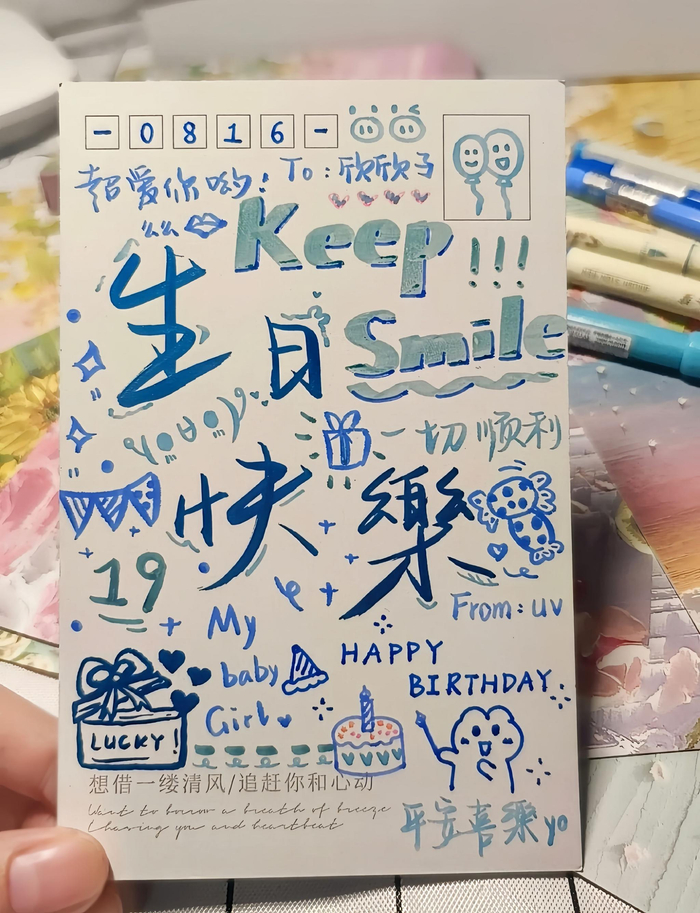 - 0 8 1 6 -
超爱你哟! To:欣欣子
Keep
生日
Smile
!!!
一切顺利
快樂
19
From:uv
My
baby
Girl
HAPPY
BIRTHDAY
LUCKY!
想借一缕清风/追赶你和心动
Want to borrow a breath of breeze
Chasing you and heartbeat
平安喜樂yo